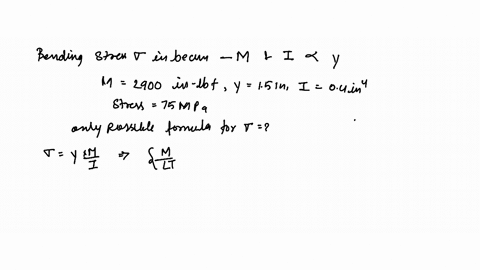 Bending stress σ in beam – M & I ∝ y
M = 2900 in-lbf, y = 1.5 in, I = 0.4 in⁴
Stress = 75 MPa
only possible formula for σ = ?
σ = y M/I ⇒ { M/LT